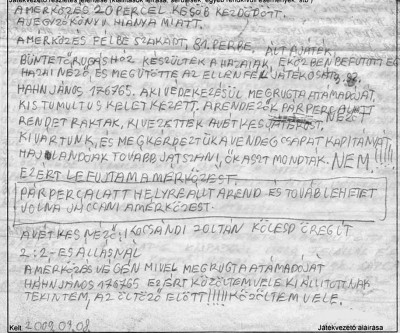 Játékvezető részletes jelentése (kiállítások leírása, sérülések, egyéb rendkívüli események, stb.)
AMÉRKŐZÉS 20 PERCEL KÉSŐB KEZDŐDÖTT.
AJEGYZŐKÖNYV HIÁNYA MIATT.
AMÉRKŐZÉS FÉLBE SZAKADT, 81. PERBE. ALT AJÁTÉK,
BÜNTETŐRUGÁSHOZ KÉSZÜLTEK A HAZAI, EKÖZBEN BEFUTOTT EGY
HAZAI NÉZŐ, ÉS MEGÜTÖTTE AZ ELLENFÉL JÁTÉKOSÁT
HAHN JÁNOS 176765. AKI VÉDEKEZÉSÜL MEGRUGTA ATÁMADÓJÁT
KIS TUMULTUS KELETKEZETT. ARENDEZŐK PÁRPERC ALATT
RENDET RAKTAK, KIVEZETTÉK AVÉTKES NÉZŐT
KIVÁRTUNK, ÉS MEGKÉRDEZTÜK A VENDÉG CSAPAT KAPITÁNYÁT,
HAJLANDÓAK TOVÁBB JÁTSZANI, ŐK AZT MONDTÁK. NEM!!!!
EZÉRT LEFUJTAM A MÉRKŐZÉST.
PÁRPERC ALATT HELYREÁLLT AREND ÉS TOVÁB LEHETET
VOLNA JÁCCANI AMÉRKŐZÉST.
AVÉTKES NÉZŐ: KOCSÁNDI ZOLTÁN KÖLESD ÖREG ÚT
2:2-ES ÁLLÁSNÁL
AMÉRKŐZÉS VÉGÉN MIVEL MEGRUGTA ATÁMADÓJÁT
HAHN JÁNOS 176765 EZÉRT KÖZÖLTEM VELE KIÁLLITOTTNAK
TEKINTEM, AZ ÖLTÖZŐ ELŐTT!!!!! KÖZÖLTEM VELE.
Kelt 2009.09.08 Játékvezető aláírása